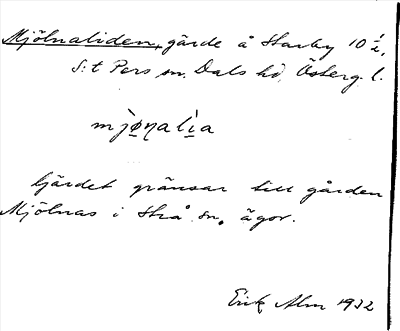 Mjölnaliden, gärde å Starby 10 1/2,
S:t Pers sn. Dals hd, Österg. l.
mjǫ̀ṇalì̱a
Gärdet gränsar till gården
Mjölnas i Strå sn. ägor.
Erik Alm 1932